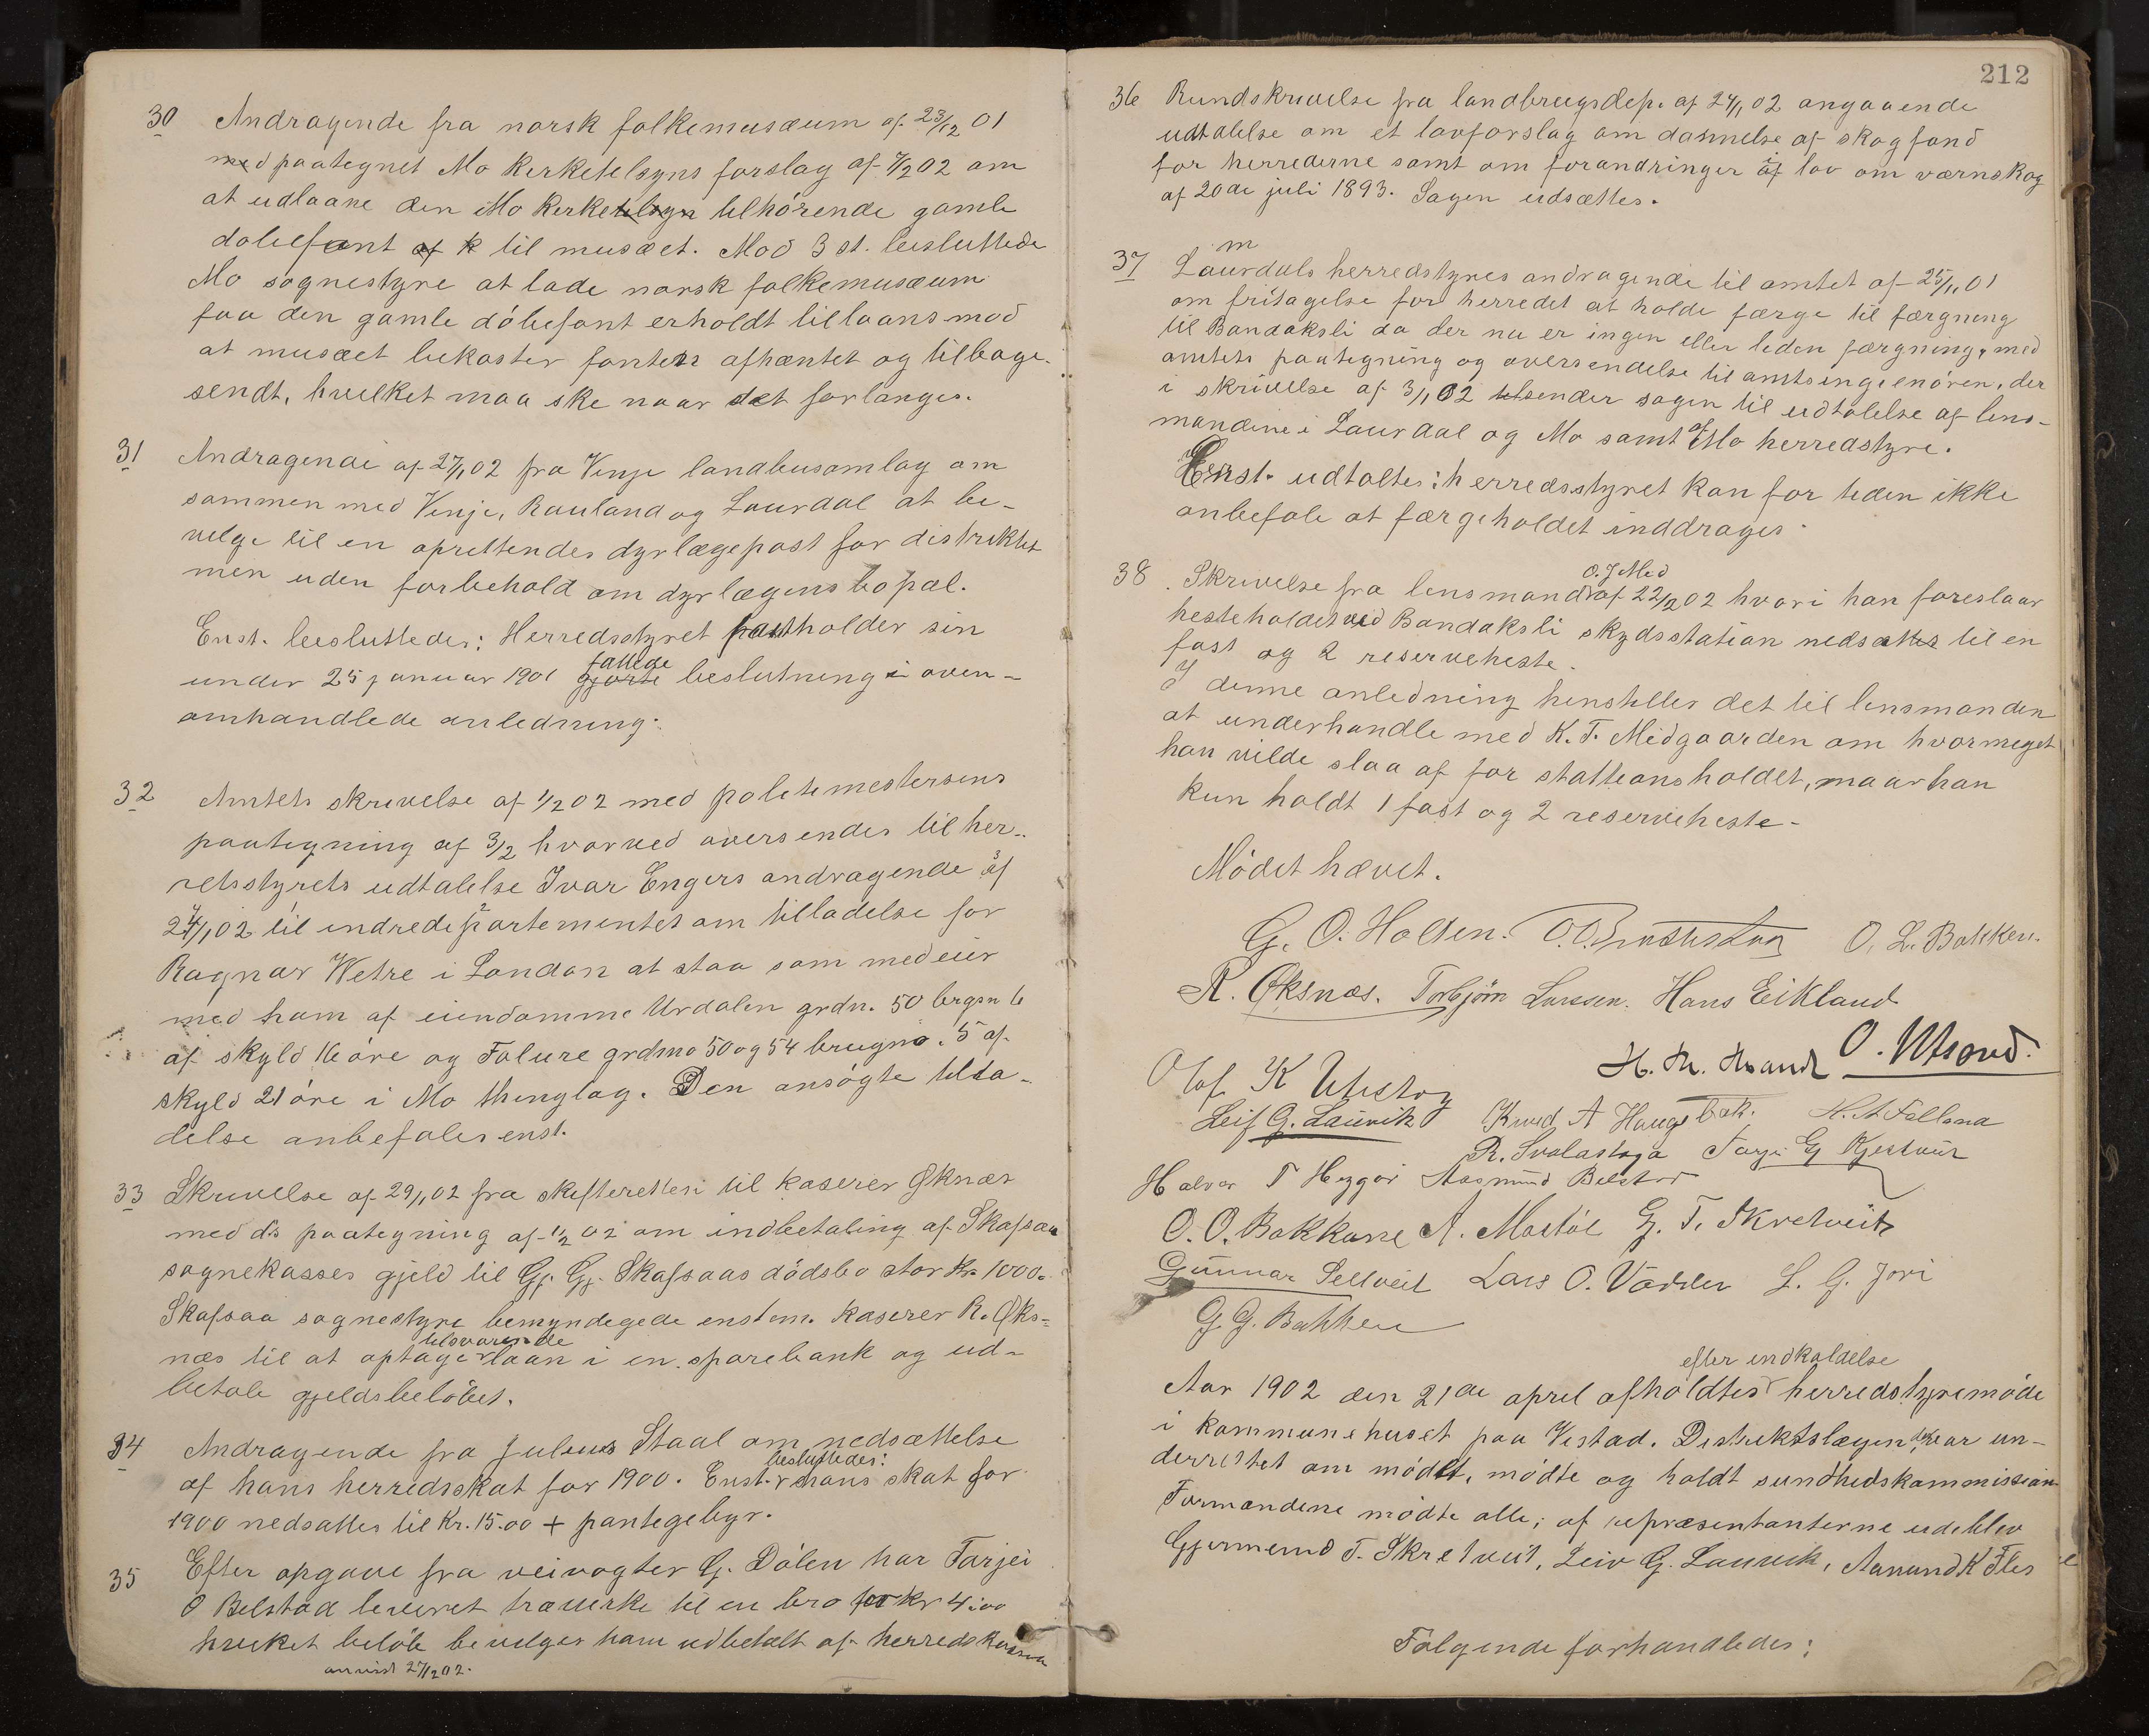 30 Andragende fra norsk folkemusæum af 23/12 01
med paategnet Mo kirketilsyns forslag af 7/2 02 om
at udlaane den Mo kirke tilhørende gamle
døbefont til musæet. Mod 3 st. besluttede
Mo sognestyre at lade norsk folkemusæum
faa den gamle døbefont erholdt tillaans mod
at musæet bekoster fonten afhæntet og tilbage-
sendt, hvilket maa ske naar det forlanges.
31 Andragende af 27/1 02 fra Vinje landbusamlag om
sammen med Vinje, Rauland og Laurdal at be-
vilge til en oprettendes dyrlægepost for distriktet
men uden forbehold om dyrlægens bopæl.
Enst. besluttedes: Herredsstyret fastholder sin
under 25 januar 1901 fattede beslutning i oven-
omhandlede anledning.
32 Amtets skrivelse af 1/2 02 med politimestersens
paategning af 3/2 hvorved oversendes til her-
redsstyrets udtalelse Ivar Engers andragende af
24/1 02 til indredepartementet om tilladelse for
Ragnar Wetre i London at staa som medeier
med ham af eiendomme Urdalen grdn. 50 brgsn 6
af skyld 16 øre og Folure grdsno 50 og 54 brugno. 5 af
skyld 21 øre i Mo thinglag. Den ansøgte tilla-
delse anbefales enst.
33 Skrivelse af 29/1 02 fra skifteretten til kaserer Øknæs
med ds paategning af 1/2 02 om indbetaling af Skafsaa
sognekasses gjeld til Gj. Gj. Skafsaas dødsbo stor Kr. 1000.
Skafsaa sognestyre bemyndegede enstem. kaserer R. Øks-
tilsvarende
næs til at optage laan i en sparebank og ud-
betale gjeldsbeløbet.
34 Andragende fra Julius Staal om nedsættelse
besluttedes:
af hans herredsskat for 1900. Enst. hans skat for
1900 nedsattes til Kr. 15.00 + pantegebyr.
35 Efter opgave fra veivogter G. Dølen har Tarjei
O Belstad leveret trævirke til en bro for kr 4.00
hvilket beløb bevilges ham udbetalt af herredskassen
anvist 27/2 02.
212
36 Rundskrivelse fra landbrugsdep. af 24/1 02 angaaende
udtalelse om et lovforslag om dannelse af skogfond
for herrederne samt om forandringer i lov om værnskog
af 20de juli 1893. Sagen udsættes.
37 Laurdals herredstyres andragende til amtet af 25/11 01
om fritagelse for herredet at holde færge til færgning
til Bandaksli da der nu er ingen eller liden færgning, med
amtets paategning og oversendelse til amtsingeniøren, der
i skrivelse af 3/1 02 tilsender sagen til udtalelse af lens-
mændene i Laurdal og Mo samt af Mo herredstyre.
Enst. udtaltes: herredsstyret kan for tiden ikke
anbefale at færgeholdet inddrages.
O. J. Med
38 Skrivelse fra lensmand af 22/2 02 hvori han foreslaar
hesteholdet ved Bandaksli skydsstation nedsættes til en
fast og 2 reserveheste.
I denne anledning henstilles det til lensmanden
at underhandle med K. T. Midgaarden om hvormeget
han vilde slaa af for stattionsholdet, naar han
kun holdt 1 fast og 2 reserveheste.
Mødet hævet.
G. O. Holten. O. L. Bakken.
R. Øksnæs. Torbjørn Larssen. Hans Eikland
H. Th. Strand O. Utsond.
Olaf K Utistog
Leif G. Lauvik Knud A Haugebak. H. A Fellona
R. Svalastoga Tarje G Kjestveit
Halvor T Heggør Aasmund Belstad
O. O. Bakkane A. Mostøl G. T. Skretveit
Gunnar Sellveit Lars O. Vadder L. G. Jori
G. G. Bakken
efter indkaldelse
Aar 1902 den 21de april afholdtes herredstyremøde
i kommunehuset paa Vistad. Distriktslægen var un-
derrettet om mødet, mødte og holdt sundhedskommission.
Formændene mødte alle; af repræsentanterne udeblev
Gjermund T. Skretveit, Leiv G. Lauvik, Aanund K Fles
Følgende forhandledes: